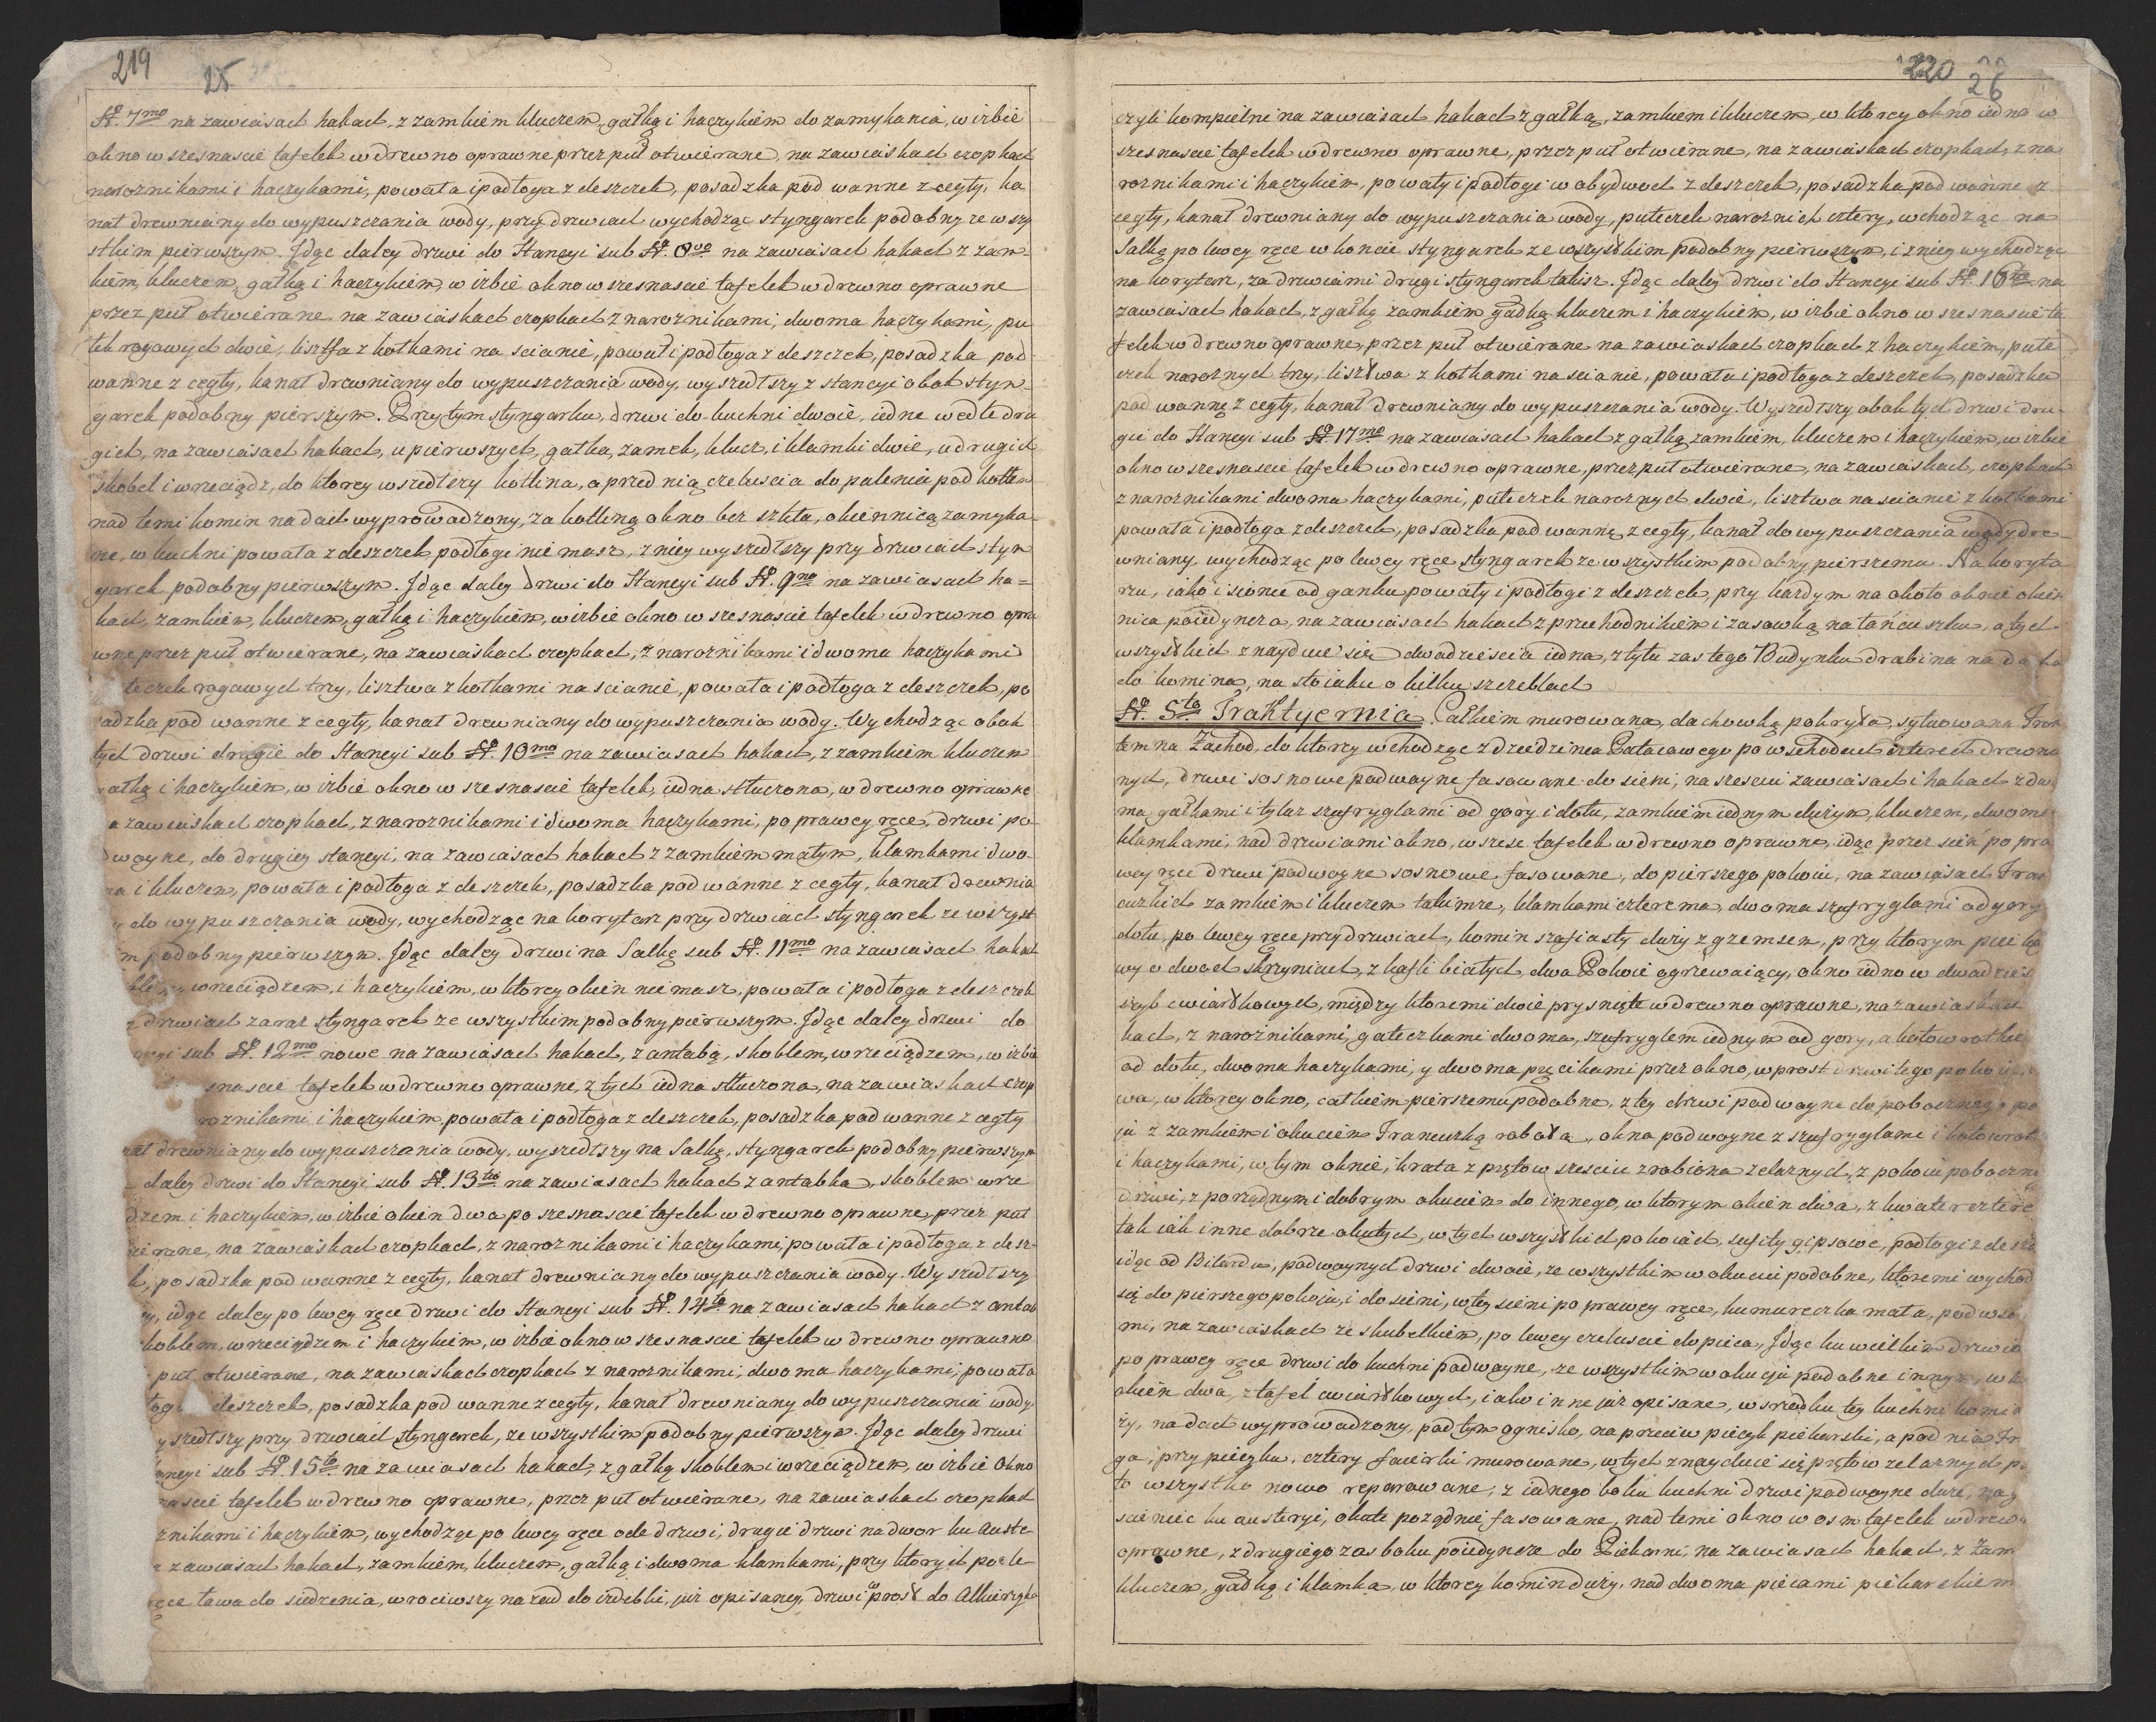 219
25
N. 7mo na zawiasach hakach, z zamkiem kluczem, gałką i haczykiem do zamykania, w izbie
okno w szesnascie tafelek w drewno oprawne przez puł otwierane, na zawiaskach czopkach
naroznikami i haczykami, powała i podłoga z deszczek, posadzka pod wanne z cegły, ka
nał drewniany do wypuszczania wody, przy drzwiach wychodząc styngarek podobny ze wszy
stkim pierwszym. Jdąc daley drzwi do Stancyi sub N. 8vo na zawiasach hakach z zam-
kiem, kluczem, gałką i haczykiem, w izbie okno w szesnascie tafelek w drewno oprawne
przez puł otwierane na zawiaskach czopkach z naroznikami, dwoma haczykami, pu
łek rogowych dwie, lisztfa z kołkami na scianie, powała i podłoga z deszczek, posadzka pod
wanne z cegły, kanał drewniany do wypuszczania wody, wyszedłszy z stancyi obok styn-
garek podobny pierszym. Przy tym styngarku, drzwi do kuchni dwoie, iedne wedle dru
gich, na zawiasach hakach, u pierwszych, gałka, zamek, klucz, i klamki dwie, u drugich
skobel i wrzeciądz, do ktorey wszedłszy kotlina, a przed nią czeluscia do palenia pod kotłem
nad temi komin na dach wyprowadzony, za kotliną okno bez szkła, okiennicą zamyka-
ne, w kuchni powała z deszczek, podłogi nie masz, z niey wyszedłszy przy drzwiach styn
garek podobny pierwszym. Jdąc daley drzwi do Stancyi sub N. 9no na zawiasach ha=
kach, zamkiem, kluczem, gałką i haczykiem, w izbie okno w szesnascie tafelek w drewno opra
wne przez puł otwierane, na zawiaskach czopkach, z naroznikami i dwoma haczykami
łeczek rogowych trzy, lisztwa z kołkami na scianie, powała i podłoga z deszczek, po
adzka pod wanne z cegły, kanał drewniany do wypuszczania wody. Wychodząc obok
tych drzwi drugie do Stancyi sub N. 10mo na zawiasach hakach, z zamkiem kluczem
ałką i haczykiem, w izbie okno w szesnascie tafelek, iedna stłuczona, w drewno oprawne
a zawiaskach czopkach, z naroznikami i dwoma haczykami, po prawey ręce, drzwi po-
dwoyne, do drugiey stancyi, na zawiasach hakach z zamkiem małym, klamkami dwo-
ma i kluczem, powała i podłoga z deszczek, posadzka pod wanne z cegły, kanał drewnia
y do wypuszczania wody, wychodząc na korytarz przy drzwiach styngarek ze wszyst
m podobny pierwszym. Jdąc daley drzwi na Salkę sub N. 11mo na zawiasach hakach
wrzeciądzem, i haczykiem, w ktorey okien nie masz, powała i podłoga z deszczek
drzwiach zaraz styngarek ze wszystkim podobny pierwszym. Jdąc daley drzwi do
cyi sub N. 12mo nowe na zawiasach hakach, z antabą, skoblem, wrzeciądzem, w izbie
snascie tafelek w drewno oprawne, z tych iedna stłuczona, na zawiaskach czop
roznikami i haczykiem, powała i podłoga z deszczek, posadzka pod wanne z cegły
nał drewniany do wypuszczania wody, wyszedłszy na Salkę, styngarek podobny pierwszym
daley drzwi do Stancyi sub N. 13tio na zawiasach hakach z antabka, skoblem wrze
dzem i haczykiem, w izbie okien dwa po szesnascie tafelek w drewno oprawne, przez puł
ierane, na zawiaskach czopkach, z naroznikami i haczykami, powała i podłoga z desz-
k, posadzka pod wanne z cegły, kanał drewniany do wypuszczania wody. Wyszedłszy
y, idąc daley po lewey ręce drzwi do Stancyi sub N. 14to na zawiasach hakach z antab
skoblem, wrzeciądzem i haczykiem, w izbie okno w szesnascie tafelek w drewno oprawno
puł otwierane, na zawiaskach czopkach z naroznikami, dwoma haczykami, powała
łog deszczek, posadzka pod wanne z cegły, kanał drewniany do wypuszczania wody
yszedłszy przy drzwiach styngarek, ze wszystkim podobny pierwszym. Jdąc daley drzwi
ancyi sub N. 15to na zawiasach hakach, z gałką skoblem i wrzeciądzem, w izbie okno
nascie tafelek w drewno oprawne, przez puł otwierane, na zawiaskach czopkach
znikami i haczykiem, wychodząc po lewey ręce ode drzwi, drugie drzwi na dwor ku Auste-
a zawiasach hakach, zamkiem, kluczem, gałką i dwoma klamkami, przy ktorych po le-
ręce ława do siedzenia, wrociwszy nazad do izdebki, już opisaney, drzwi wprost do Alkierzyka
220
26
czyli kompielni na zawiasach hakach z gałką, zamkiem i kluczem, w ktorey okno iedno w
szesnascie tafelek w drewno oprawne, przez puł otwierane, na zawiaskach czopkach, z na
roznikami i haczykiem, powały i podłogi w obydwoch z deszczek, posadzka pod wanne z
cegły, kanał drewniany do wypuszczania wody, pułeczek naroznich cztery, wchodząc na
Salkę po lewey ręce w koncie styngarek ze wszystkim podobny pierwszym, i z niey wychodząc
na korytarz, za drzwiami drugi styngarek takisz. Jdąc daley drzwi do Stancyi sub N. 16to na
zawiasach hakach, z gałką zamkiem gadką kluczem i haczykiem, w izbie okno w szesnascie ta
felek w drewno oprawne, przez puł otwierane na zawiaskach czopkach z haczykiem, pułe
czek naroznych trzy, lisztwa z kołkami na scianie, powała i podłoga z deszczek, posadzka
pod wannę z cegły, kanał drewniany do wypuszczania wody. Wyszedłszy obok tych drzwi dru-
gie do Stancyi sub N. 17mo na zawiasach hakach z gałką zamkiem, kluczem i haczykiem, w izbie
okno w szesnascie tafelek w drewno oprawne, przez puł otwierane, na zawiaskach, czopkach
z naroznikami dwoma haczykami, pułeczek naroznych dwie, lisztwa na scianie z kołkami
powała i podłoga z deszczek, posadzka pod wannę z cegły, kanał do wypuszczania wody dre-
wniany, wychodząc po lewey ręce styngarek ze wszystkim podobny pierszemu. Na koryta
rzu, iako i sionie od ganku powały i podłogi z deszczek, przy kazdym na około oknie okien
nica poiedyncza, na zawiasach hakach z przechodnikiem i zasowką na łańcuszku, a tych
wszystkich znayduie się dwadziescia iedna, z tyłu zas tego Budynku drabina na dachu
do komina, na stoiaku o kilku szczeblach
N. 5to Traktyernia. Całkiem murowana, dachowką pokryta, sytuowana Fron
tem na Zachod, do ktorey wchodząc z dziedzinca Pałacowego po wschodach czterech drewnia
nych, drzwi sosnowe podwoyne fasowane do sieni, na szesciu zawiasach i hakach z dwo
ma gałkami i tyluż szufryglami od gory i dołu, zamkiem iednym dużym, kluczem, dwoma
klamkami, nad drzwiami okno, w szesc tafelek w drewno oprawne, idąc przez sień po pra
wey ręce drzwi podwoyne sosnowe fasowane, do pierszego pokoiu, na zawiasach Fran
cuzkich zamkiem i kluczem takimze, klamkami czterema, dwoma szufryglami od gory
dołu, po lewey ręce przy drzwiach, komin szafiasty duży z gzemsem, przy ktorym piec
wy o dwoch skrzyniach, z kafli białych dwa Pokoie ogrzewaiący, okno iedno w dwadzies
szyb cwiartkowych, między ktoremi dwie prysnięte w drewno oprawne, na zawiaskach
kach, z naroznikami, gałeczkami dwoma, szufryglem iednym od gory, a kołowrotkie
od dołu, dwoma haczykami, y dwoma pręcikami przez okno, wprost drzwi tego pokoiu
wa, w ktorey okno, całkiem pierszemu podobne, z tey drzwi podwoyne do pobocznego po
ju z zamkiem i okuciem Francuzką robotą, okna podwoyne z szufryglami i kołowrot
i haczykami, w tym oknie, krata z prętow szesciu zrobiona zelaznych, z pokoiu poboczne
drzwi, z porządnym i dobrym okuciem do innego, w ktorym okien dwa, z kwater cztere
tak iak inne dobrze okutych, w tych wszystkich pokoiach, sufity gipsowe, podłogi z deszc
idąc od Bilardu, podwoynych drzwi dwoie, ze wszystkim w okuciu podobne, ktoremi wychod
się do pierszego pokoju, i do sieni, w tey sieni po prawey ręce, kumureczka mała, pod wsc
mi, na zawiaskach ze skubelkiem, po lewey czeluscie do pieca, Jdąc ku wielkim drzwio
po prawey ręce drzwi do kuchni podwoyne, ze wszystkim w okuciu podobne innym, w k
okien dwa, z tafel cwiartkowych, iako inne już opisane, w srzodku tey kuchni komin
ży, na dach wyprowadzony, pod tym ognisko, na przeciw piecyk piekarski, a pod nia Fr
ga, przy piecyku, cztery faierki murowane, w tych znayduie się prętow zelaznych p
to wszystko nowo reperowane, z iednego boku kuchni drzwi podwoyne duże, na
scieniec ku austeryi, okute porządnie fasowane, nad temi okno w osm tafelek w drew
oprawne, z drugiego zas boku poiedyncze do Piekarni, na zawiasach hakach, z zam
kluczem, gadką i klamką, w ktorey komin duży, nad dwoma piecami piekarskiem